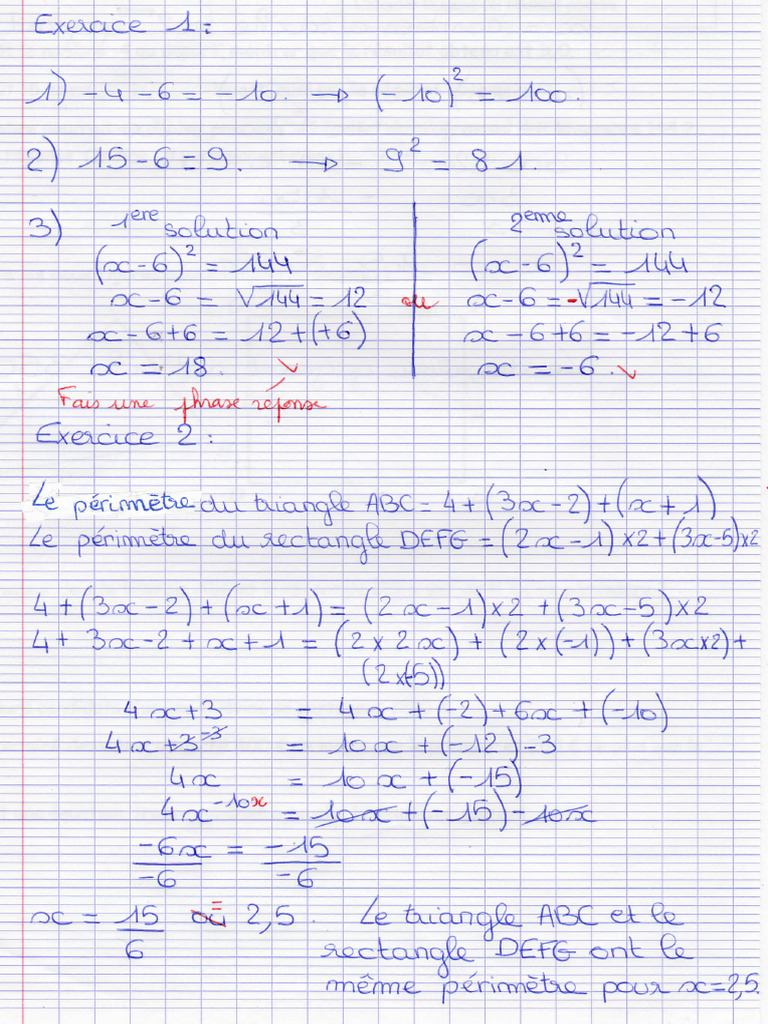 Exercice 1 :
1) -4 - 6 = -10. → (-10)² = 100.
2) 15 - 6 = 9. → 9² = 81.
3) 1ère solution | 2ème solution
(x-6)² = 144 | (x-6)² = 144
x-6 = √144 = 12 ou x-6 = -√144 = -12
x-6+6 = 12+(+6) | x-6+6 = -12+6
x = 18. | x = -6.
Fais une phrase réponse
Exercice 2 :
Le périmètre du triangle ABC = 4+(3x-2)+(x+1)
Le périmètre du rectangle DEFG = (2x-1)×2+(3x-5)×2
4+(3x-2)+(x+1) = (2x-1)×2+(3x-5)×2
4+ 3x-2+x+1 = (2×2x)+(2×(-1))+(3x×2)+
(2×(-5))
4x+3 = 4x+(-2)+6x+(-10)
4x+3-3 = 10x+(-12)-3
4x = 10x+(-15)
4x-10x = 10x+(-15)-10x
-6x/-6 = -15/-6
x = 15/6 ou = 2,5. Le triangle ABC et le
rectangle DEFG ont le
même périmètre pour x=2,5.